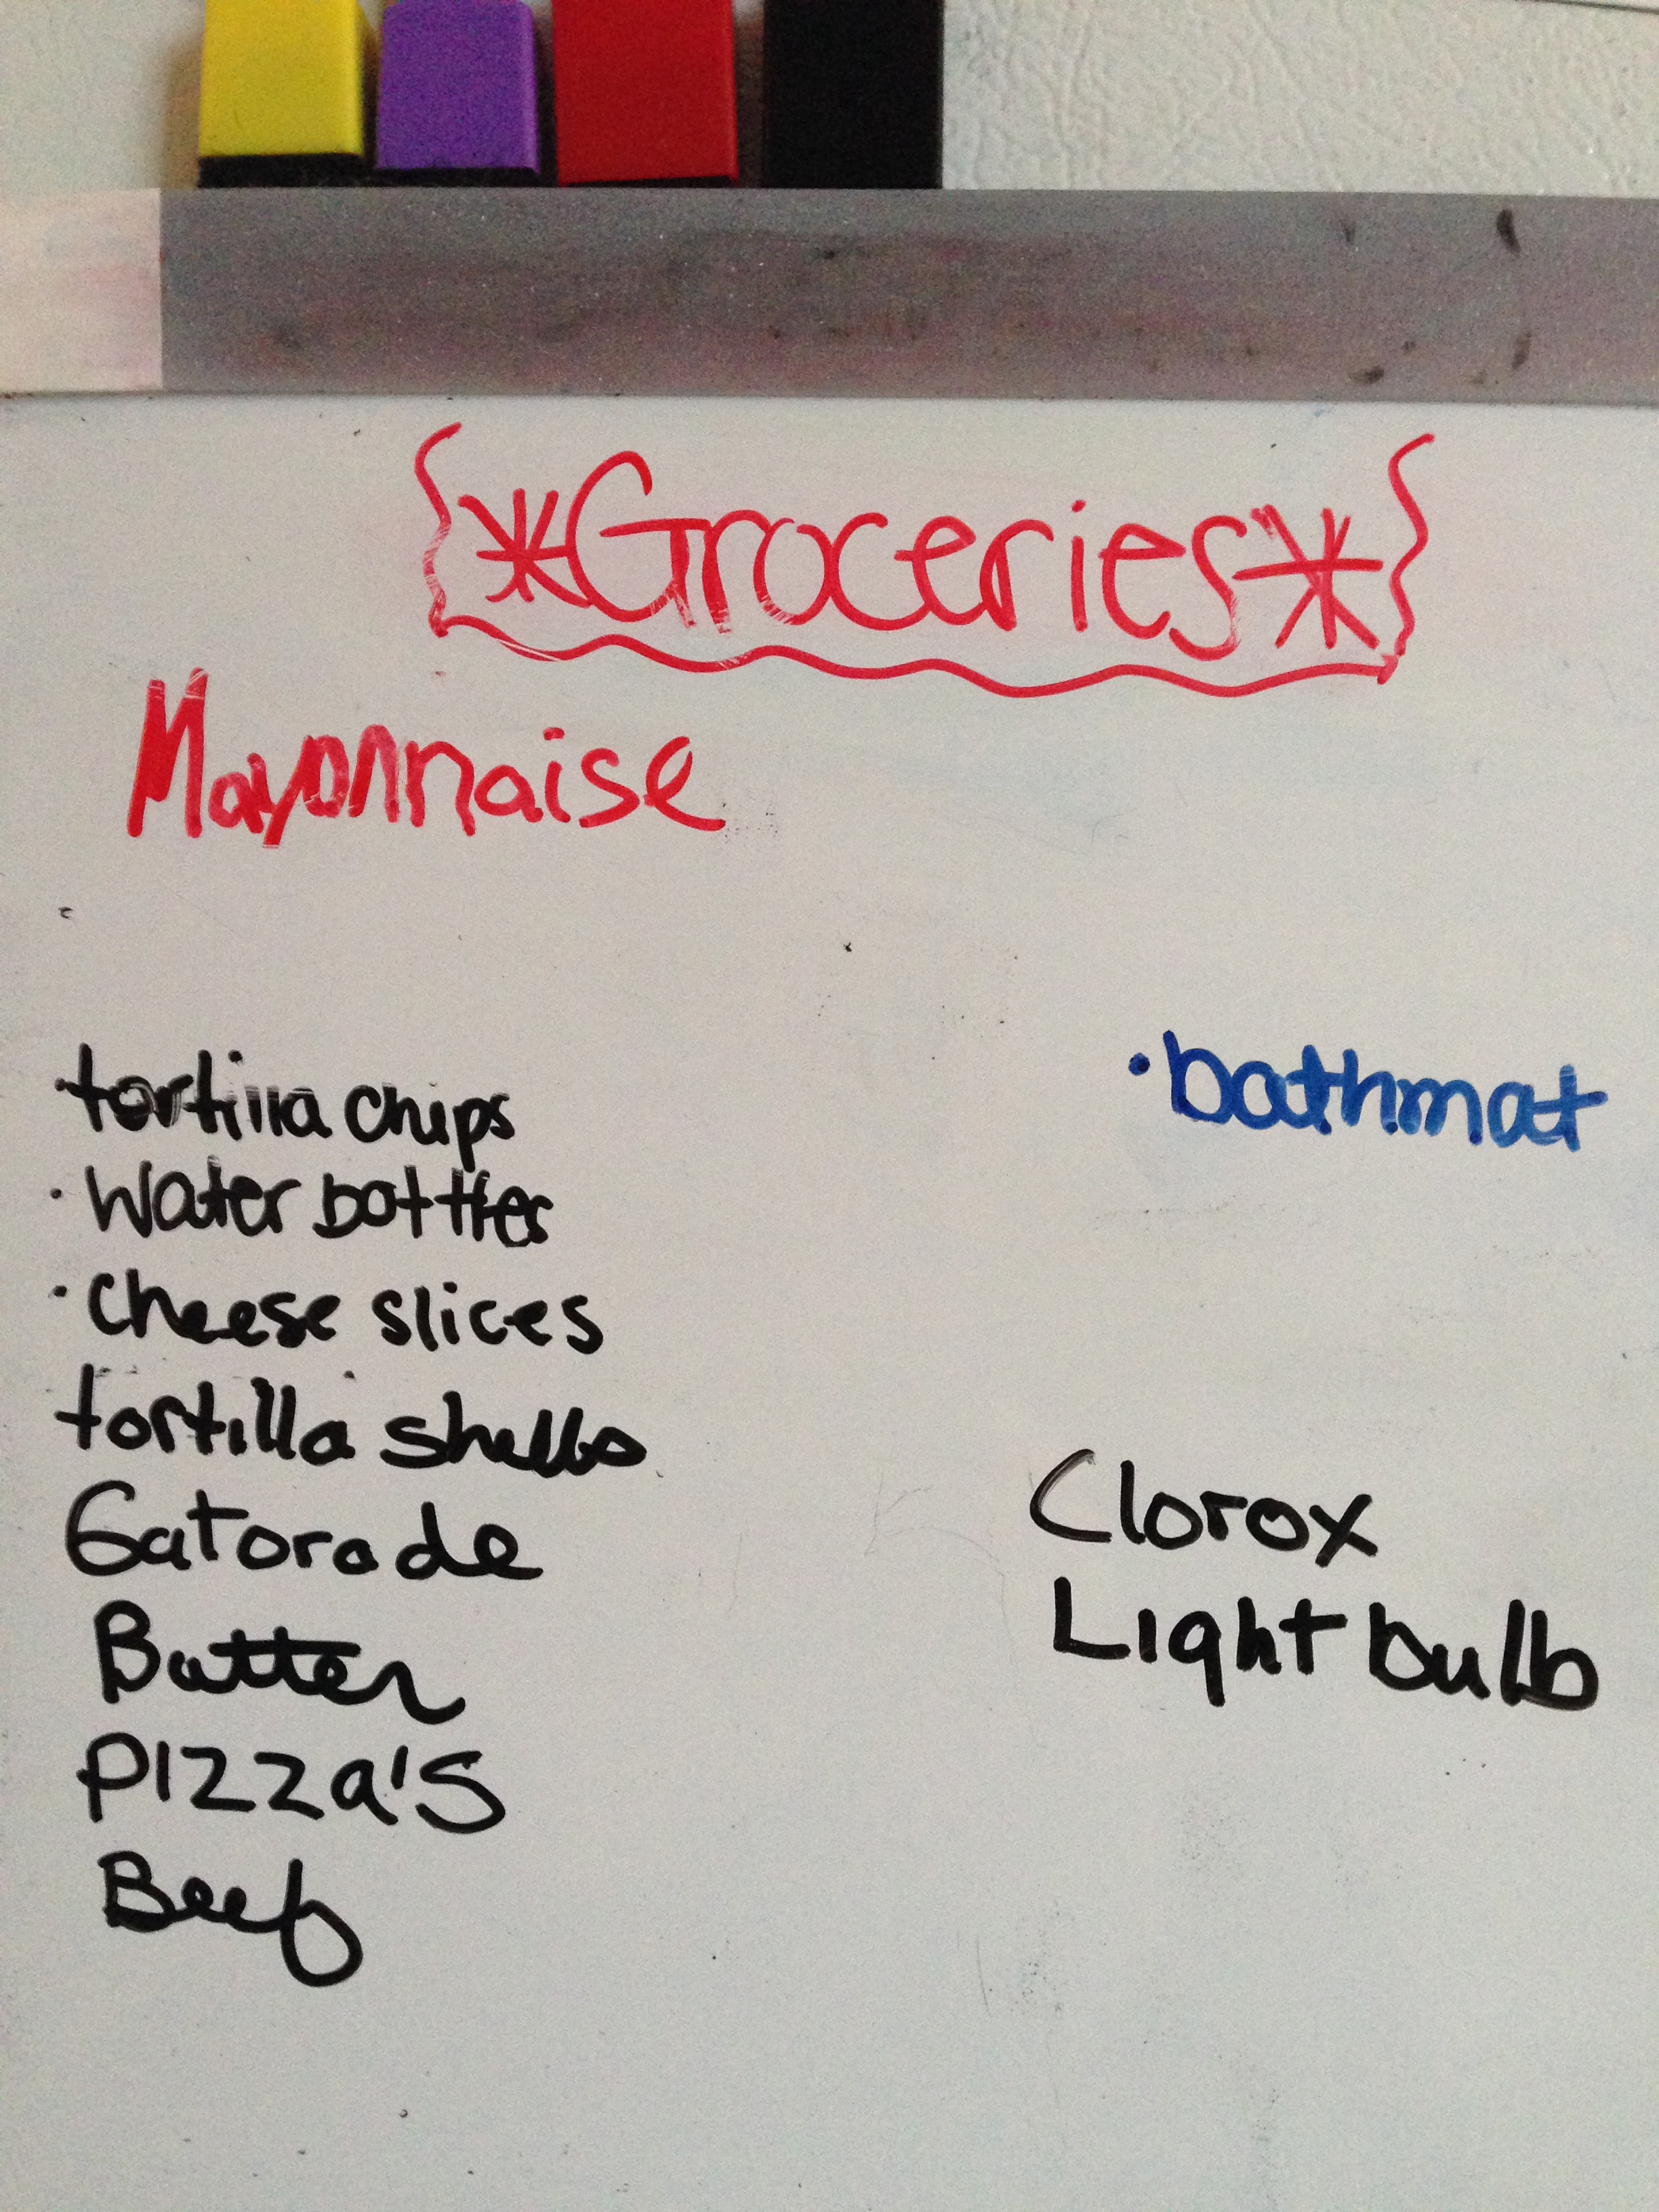 *Groceries*
Mayonnaise
tortilla chips
· Water bottles
· Cheese slices
tortilla shells
Gatorade
Butter
PIZZa'S
Beef
· bathmat
Clorox
Light bulb